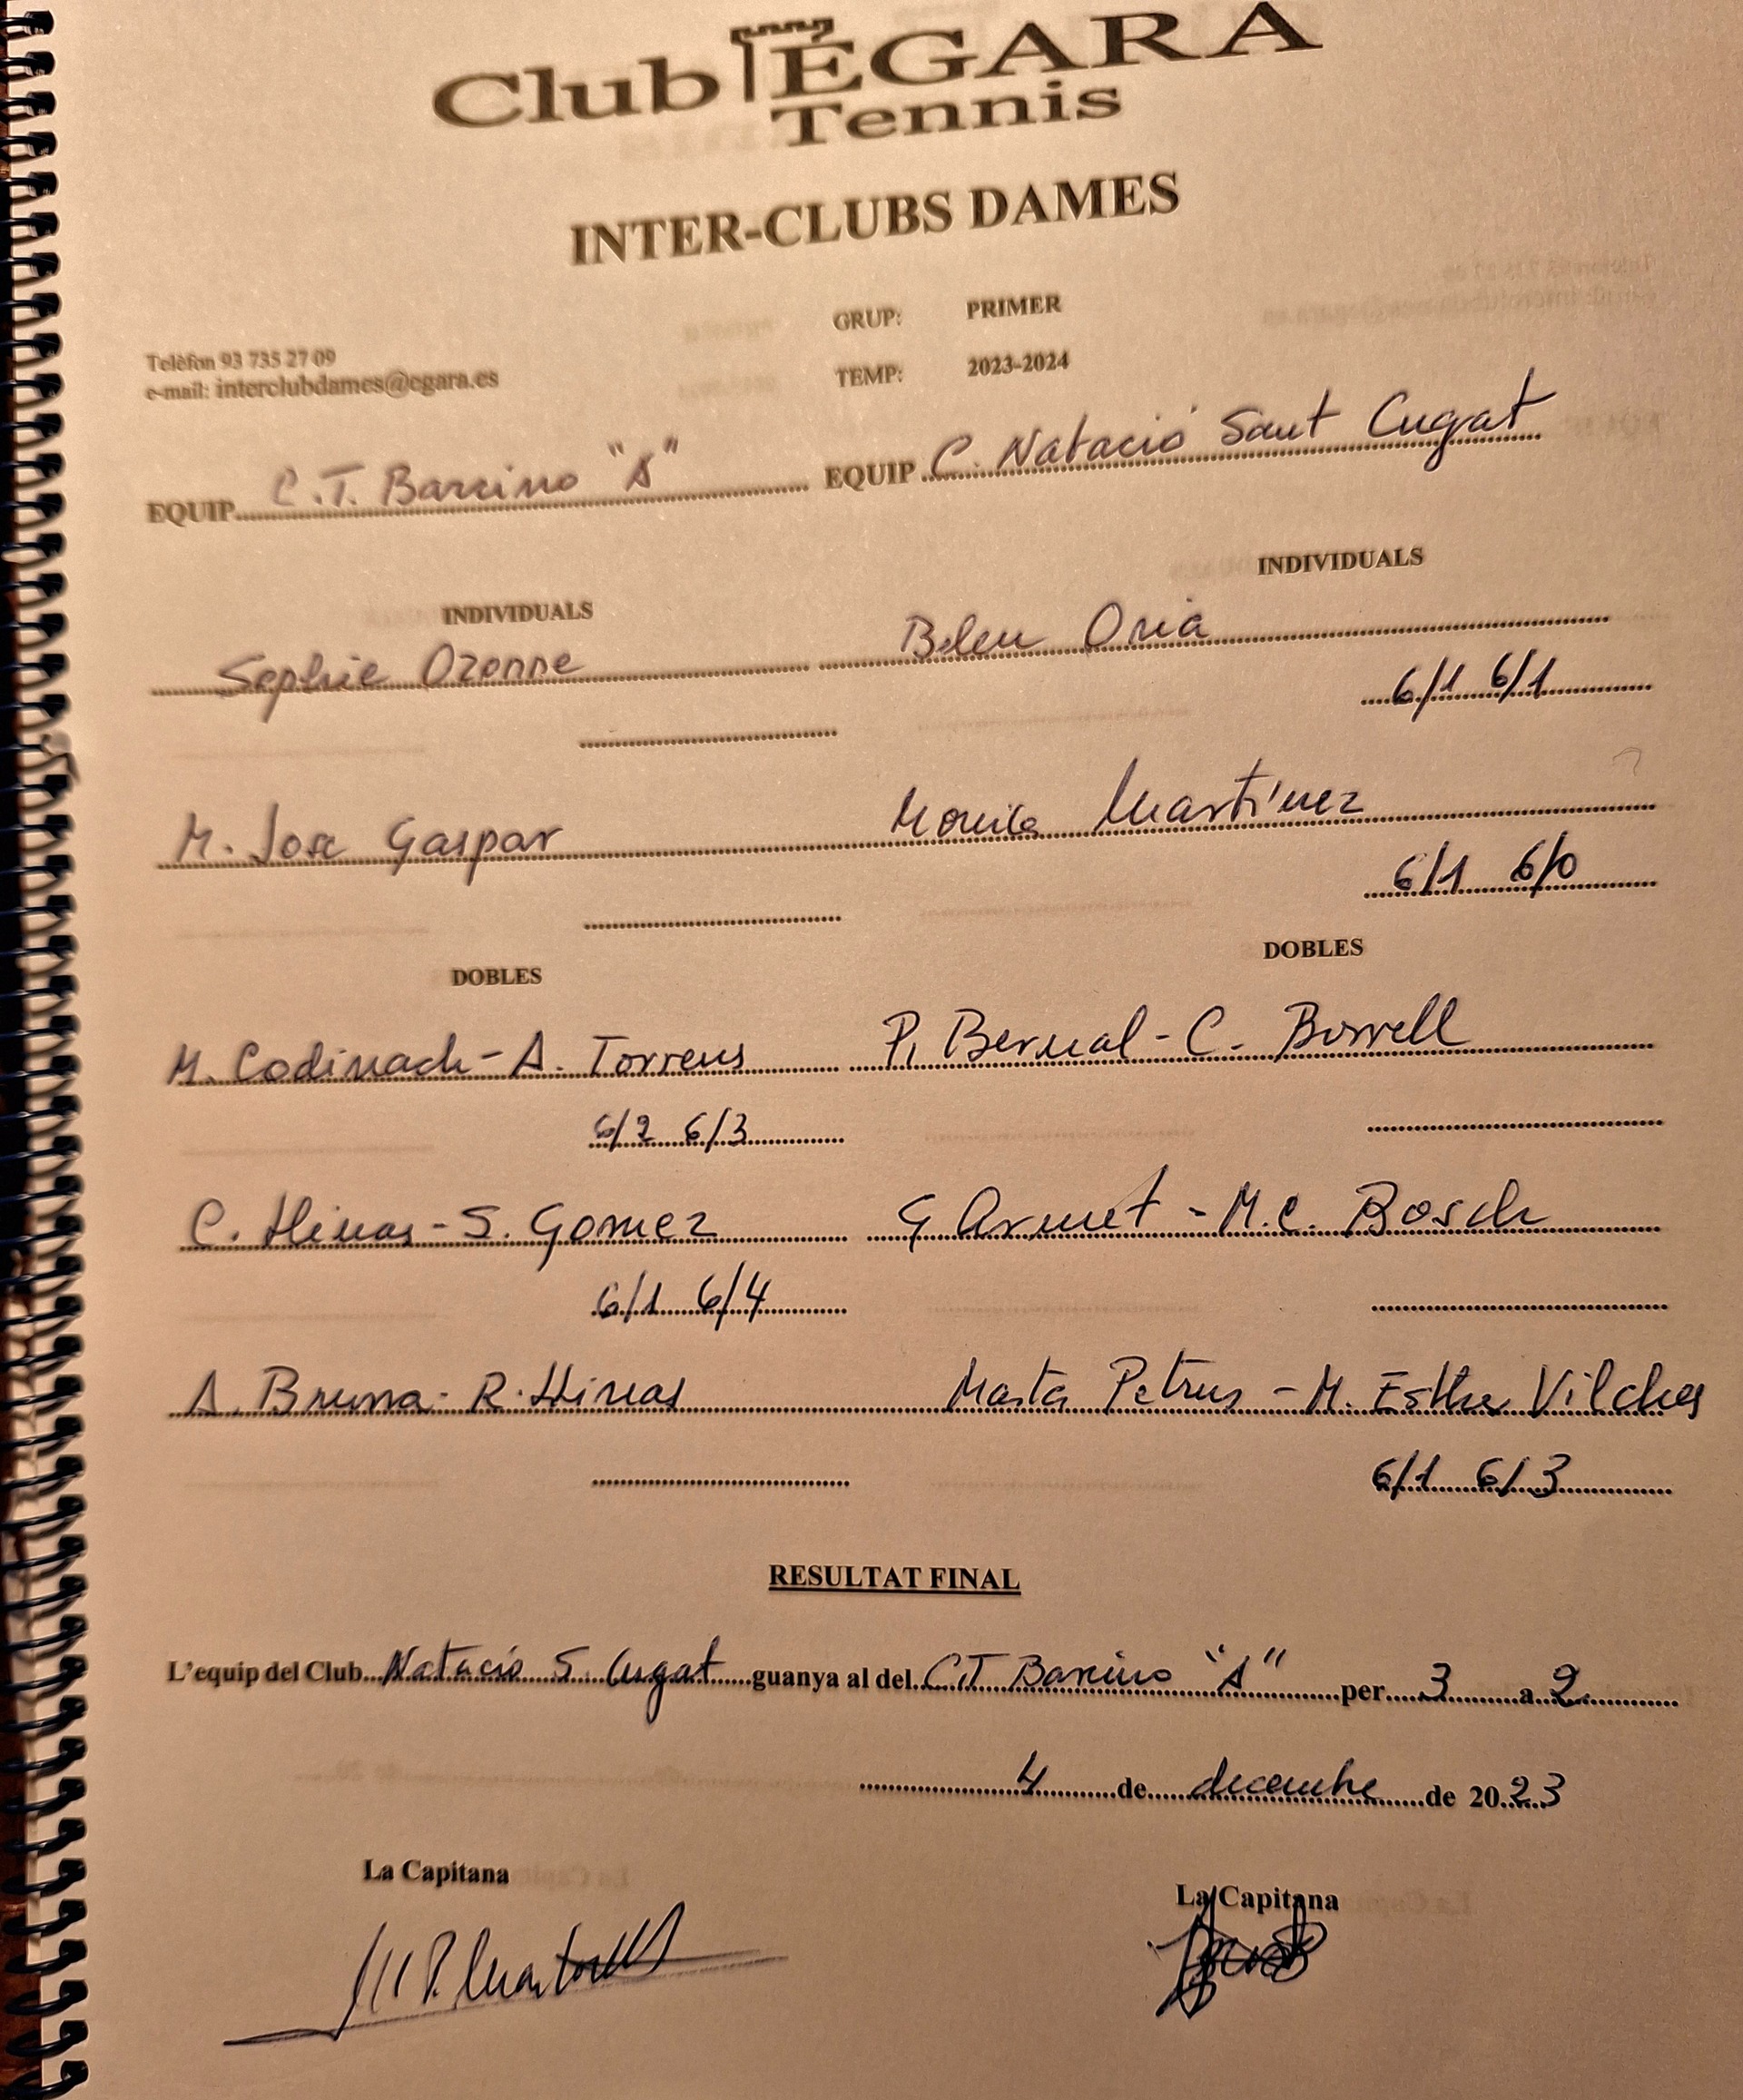 Club ÈGARA
Tennis
INTER-CLUBS DAMES
GRUP: PRIMER
Telèfon 93 735 27 09
e-mail: interclubdames@egara.es
TEMP: 2023-2024
EQUIP C.T. Barcino "A" EQUIP C. Natació Sant Cugat
INDIVIDUALS INDIVIDUALS
Sophie Ozonne Belen Oria
6/1 6/1
M. Jose Gaspar Monica Martínez
6/1 6/0
DOBLES DOBLES
M. Codinach - A. Torrens P. Bernal - C. Borrell
6/2 6/3
C. Llinas - S. Gomez G Armet - M.C. Bosch
6/1 6/4
A. Bruna - R. Llinas Marta Petrus - M. Esther Vilches
6/1 6/3
RESULTAT FINAL
L'equip del Club Natació S. Cugat guanya al del C.T Barcino "A" per 3 a 2
4 de decembre de 2023
La Capitana La Capitana